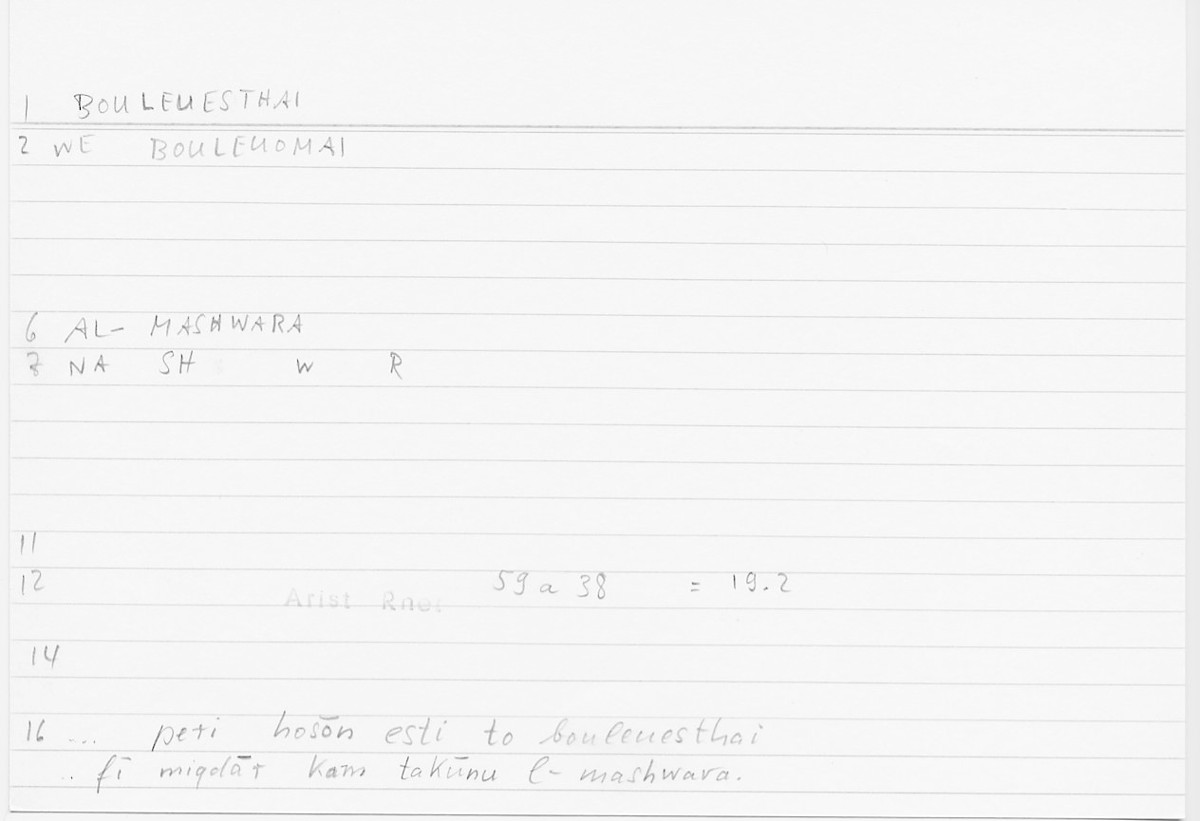 1 BOULEUESTHAI
2 WE BOULEUOMAI
6 AL- MASHWARA
7 NA SH W R
11
12 59 a 38 = 19.2
Arist Rhet
14
16 ... peri hosōn esti to bouleuesthai
.. fī miqdār kam takūnu l- mashwara.